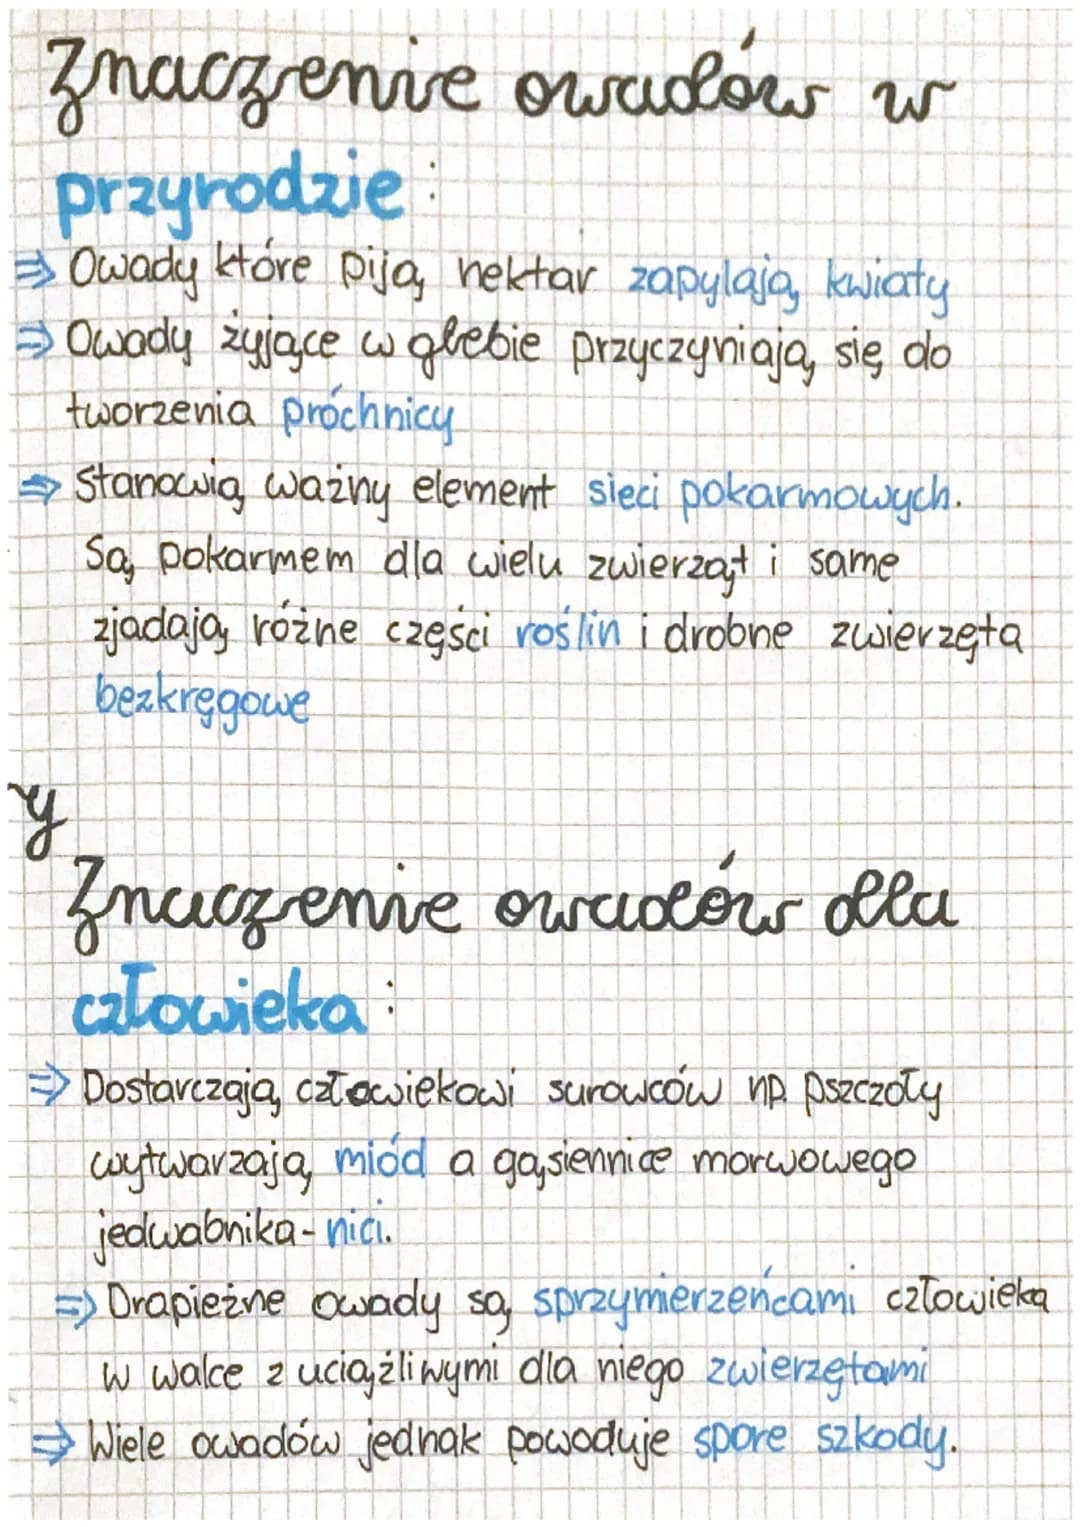 Znaczenie owadów w
przyrodzie :
⇒ Owady które piją nektar zapylają kwiaty
⇒ Owady żyjące w glebie przyczyniają się do
tworzenia próchnicy
⇒ Stanowią ważny element sieci pokarmowych.
Są pokarmem dla wielu zwierząt i same
zjadają różne części roślin i drobne zwierzęta
bezkręgowe
y
Znaczenie owadów dla
człowieka :
⇒ Dostarczają człowiekowi surowców np. pszczoły
wytwarzają miód a gąsiennice morwowego
jedwabnika - nici.
⇒ Drapieżne owady są sprzymierzeńcami człowieka
w walce z uciążliwymi dla niego zwierzętami
⇒ Wiele owadów jednak powoduje spore szkody.